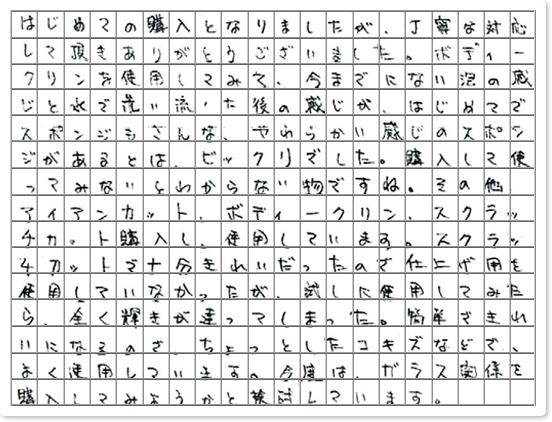 はじめての購入となりましたが、丁寧な対応
して頂きありがとうございました。ボディー
クリンを使用してみて、今までにない泡の感
じと水で洗い流した後の感じが、はじめてで
スポンジもさんな、やわらかい感じのスポン
ジがあるとは、ビックリでした。購入して使
ってみないとわからない物ですね。その他、
アイアンカット、ボディークリン、スクラッ
チカット購入し、使用しています。スクラッ
チカットで十分きれいだったので仕上げ用を
使用していなかったが、試しに使用してみた
ら、全く輝きが違ってしまった。簡単できれ
いになるのざ、ちょっとしたコキズなどで、
よく使用しています。今度は、ガラス関係を
購入してみようかと検討しています。